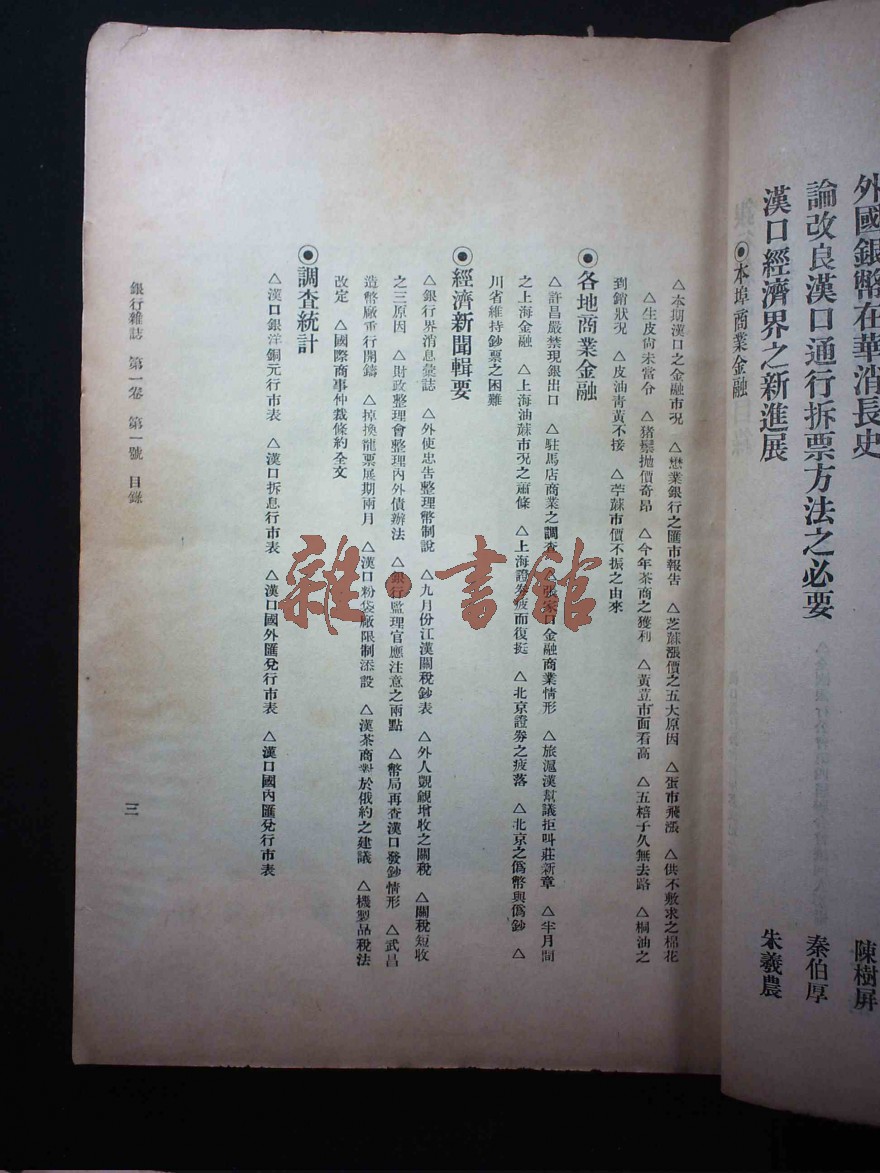 外國銀幣在華消長史 陳樹屏
論改良漢口通行拆票方法之必要 秦伯厚
漢口經濟界之新進展 朱羲農
◉本埠商業金融
△本期漢口之金融市況 △懋業銀行之匯市報告 △芝蔴漲價之五大原因 △蛋市飛漲 △供不敷求之棉花
△生皮尙未當令 △猪鬃拋價奇昂 △今年茶商之獲利 △黃荳市面看高 △五棓子久無去路 △桐油之
到銷狀況 △皮油靑黃不接 △苧蔴市價不振之由來
◉各地商業金融
△許昌嚴禁現銀出口 △駐馬店商業之調查 △張家口金融商業情形 △旅滬漢幫議拒叫莊新章 △半月間
之上海金融 △上海油蔴市況之蕭條 △上海證券疲而復挺 △北京證券之疲落 △北京之僞幣與僞鈔 △
川省維持鈔票之困難
◉經濟新聞輯要
△銀行界消息彙誌 △外使忠告整理幣制說 △九月份江漢關稅鈔表 △外人覬覦增收之關稅 △關稅短收
之三原因 △財政整理會整理內外債辦法 △銀行監理官應注意之兩點 △幣局再查漢口發鈔情形 △武昌
造幣廠重行開鑄 △掉換龍票展期兩月 △漢口粉袋廠限制添設 △漢茶商對於俄約之建議 △機製品稅法
改定 △國際商事仲裁條約全文
◉調查統計
△漢口銀洋銅元行市表 △漢口拆息行市表 △漢口國外匯兌行市表 △漢口國內匯兌行市表
銀行雜誌 第一卷 第一號 目錄 三
雜·書館